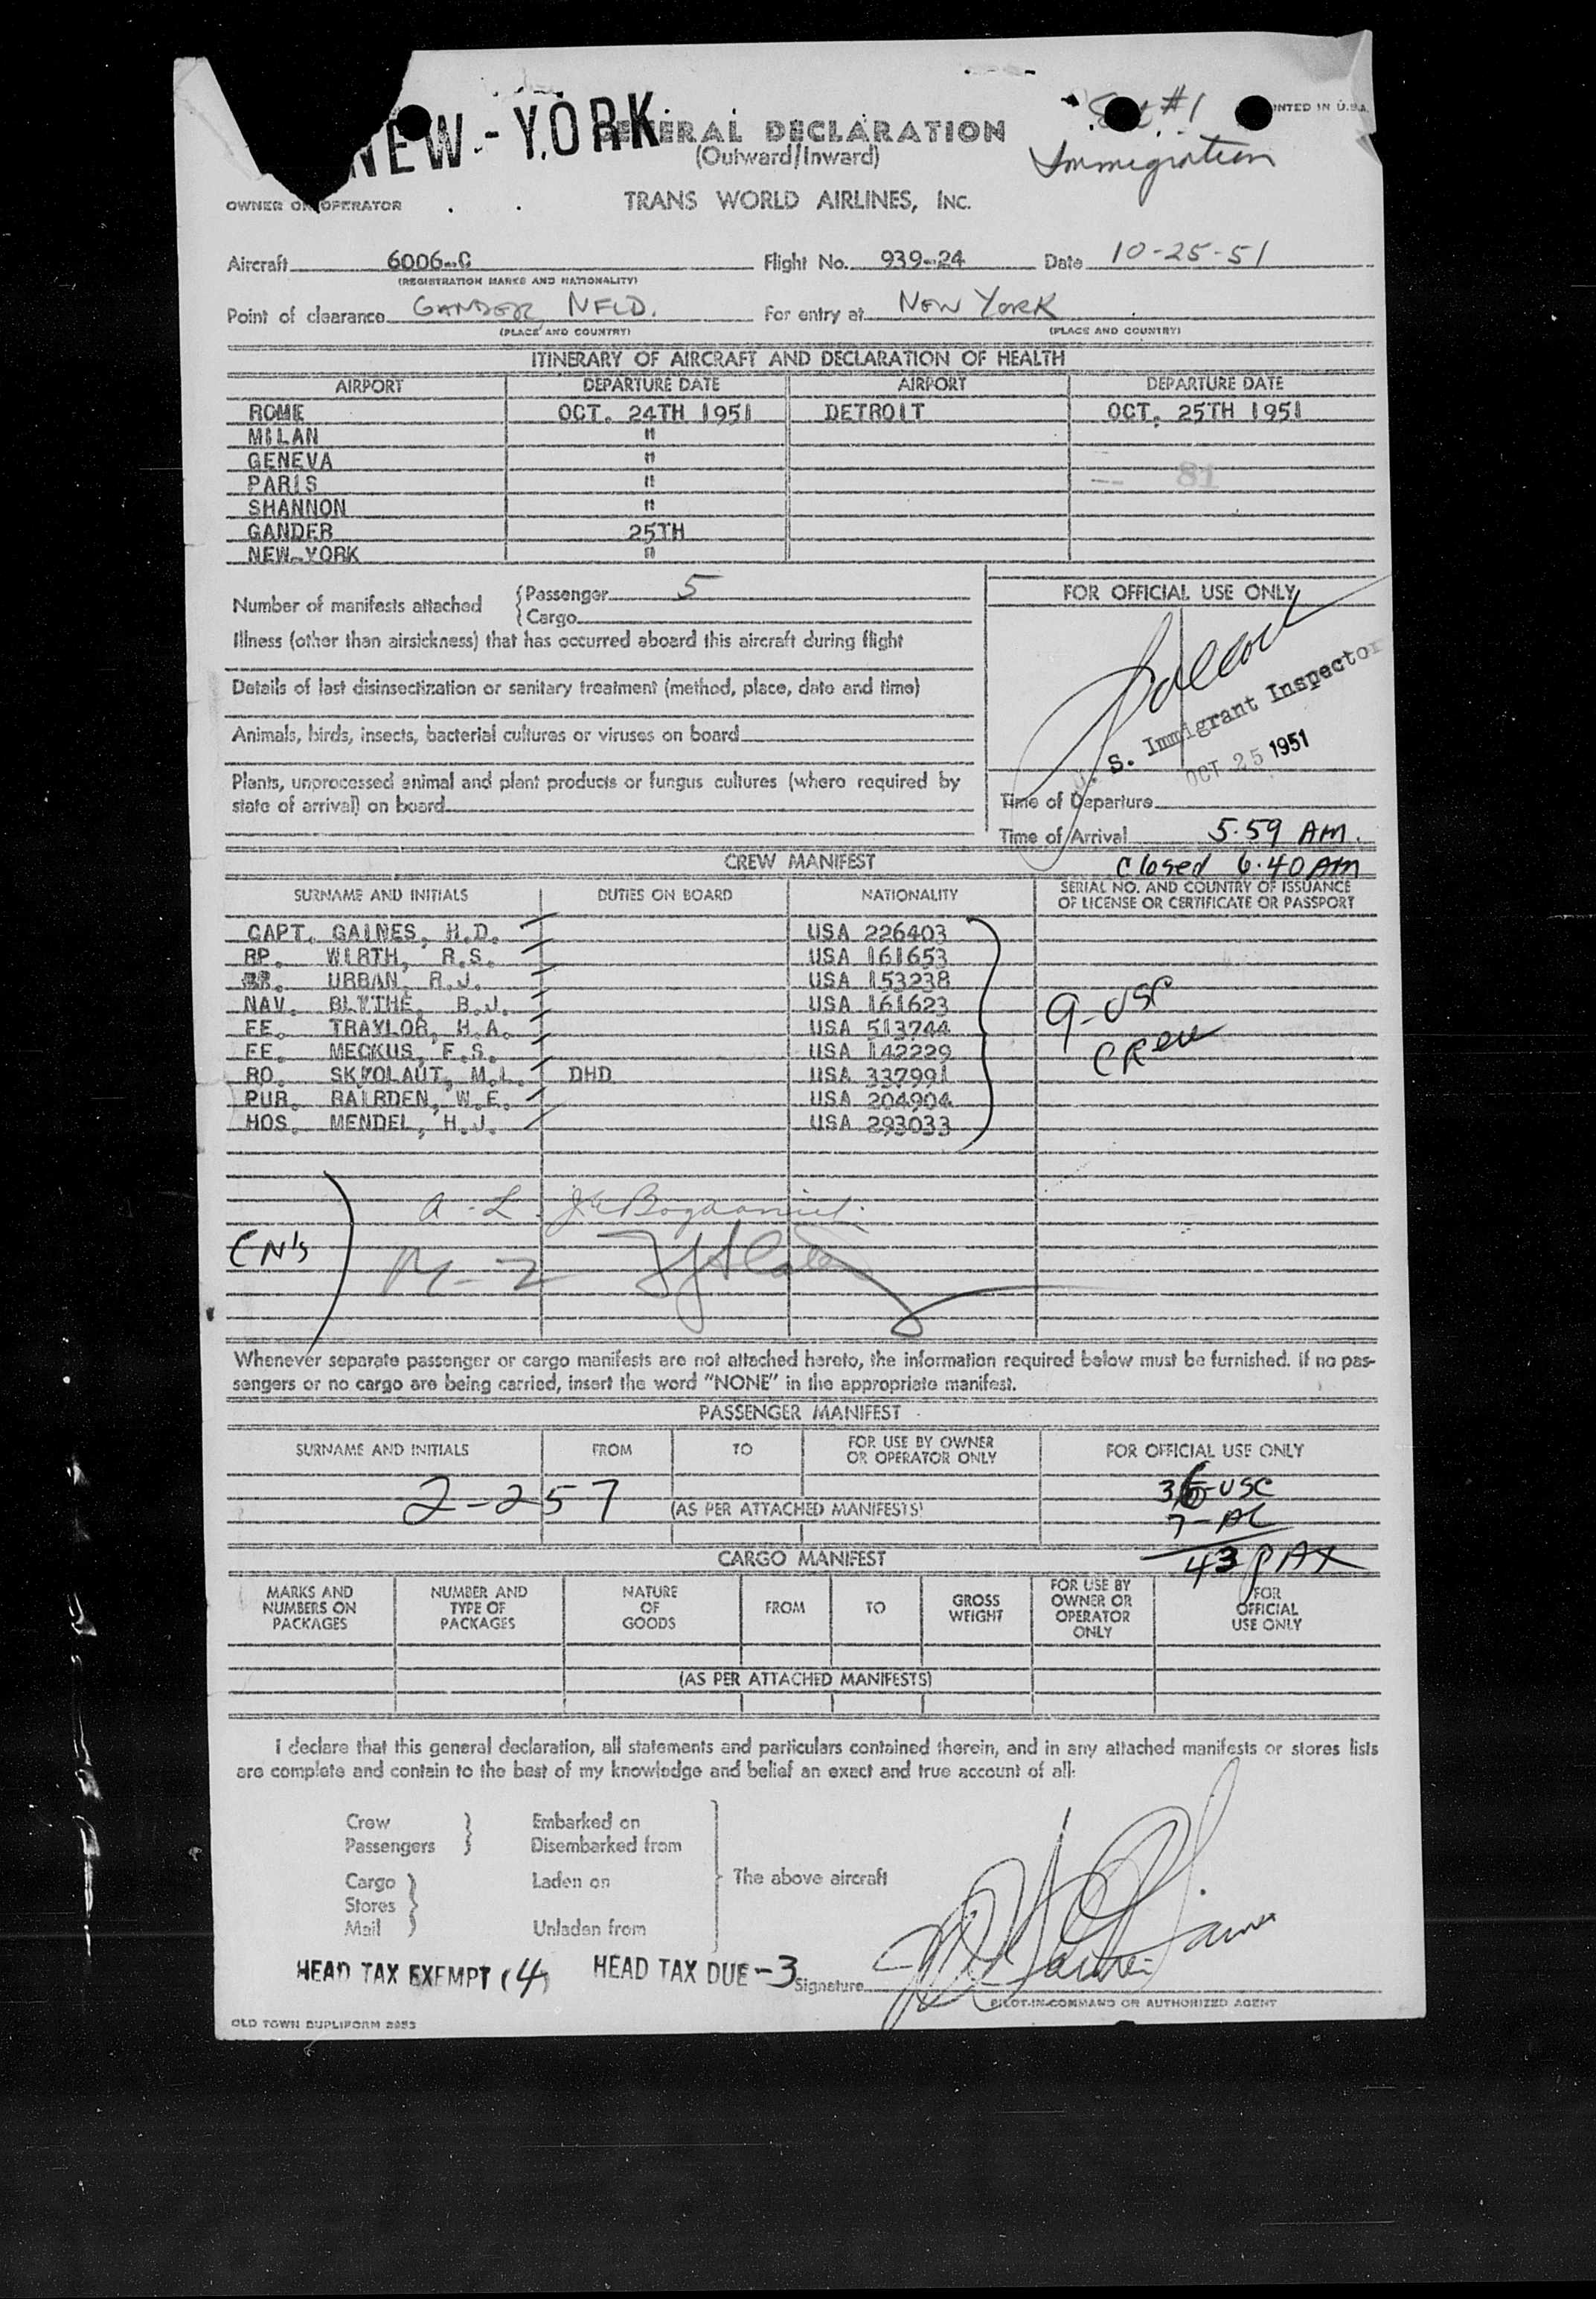 NEW-YORK
GENERAL DECLARATION
(Outward/Inward)
#1
Immigration
PRINTED IN U.S.A.
OWNER OR OPERATOR
TRANS WORLD AIRLINES, INC.
Aircraft 6006-C Flight No. 939-24 Date 10-25-51
(REGISTRATION MARKS AND NATIONALITY)
Point of clearance GANDER NFLD. For entry at NEW YORK
(PLACE AND COUNTRY) (PLACE AND COUNTRY)
ITINERARY OF AIRCRAFT AND DECLARATION OF HEALTH
AIRPORT DEPARTURE DATE AIRPORT DEPARTURE DATE
ROME OCT. 24TH 1951 DETROIT OCT. 25TH 1951
MILAN "
GENEVA "
PARIS " 81
SHANNON "
GANDER 25TH
NEW-YORK "
Number of manifests attached {Passenger 5
{Cargo
FOR OFFICIAL USE ONLY
Illness (other than airsickness) that has occurred aboard this aircraft during flight
Details of last disinsectization or sanitary treatment (method, place, date and time)
Animals, birds, insects, bacterial cultures or viruses on board
Plants, unprocessed animal and plant products or fungus cultures (where required by
state of arrival) on board
U. S. Immigrant Inspector
OCT 25 1951
Time of Departure
Time of Arrival 5.59 AM.
Closed 6.40 AM
CREW MANIFEST
SURNAME AND INITIALS DUTIES ON BOARD NATIONALITY SERIAL NO. AND COUNTRY OF ISSUANCE
OF LICENSE OR CERTIFICATE OR PASSPORT
CAPT. GAINES, H.D. USA 226403
RP. WIRTH, R.S. USA 161653
URBAN, R.J. USA 153238
NAV. BLYTHE, B.J. USA 161623
FE. TRAYLOR, H.A. USA 513744
FE. MECKUS, F.S. USA 142229
RO. SKYOLAUT, M.L. DHD USA 337991
PUR. BAIRDEN, W.E. USA 204904
HOS. MENDEL, H.J. USA 293033
9-USC
CREW
CN's
M-2
Whenever separate passenger or cargo manifests are not attached hereto, the information required below must be furnished. If no pas-
sengers or no cargo are being carried, insert the word "NONE" in the appropriate manifest.
PASSENGER MANIFEST
SURNAME AND INITIALS FROM TO FOR USE BY OWNER
OR OPERATOR ONLY FOR OFFICIAL USE ONLY
2-257
(AS PER ATTACHED MANIFESTS)
36-USC
7-AL
43 PAX
CARGO MANIFEST
MARKS AND
NUMBERS ON
PACKAGES
NUMBER AND
TYPE OF
PACKAGES
NATURE
OF
GOODS
FROM
TO
GROSS
WEIGHT
FOR USE BY
OWNER OR
OPERATOR
ONLY
FOR
OFFICIAL
USE ONLY
(AS PER ATTACHED MANIFESTS)
I declare that this general declaration, all statements and particulars contained therein, and in any attached manifests or stores lists
are complete and contain to the best of my knowledge and belief an exact and true account of all:
Crew } Embarked on
Passengers } Disembarked from
The above aircraft
Cargo } Laden on
Stores
Mail } Unladen from
HEAD TAX EXEMPT (4) HEAD TAX DUE -3 Signature
PILOT-IN-COMMAND OR AUTHORIZED AGENT
OLD TOWN DUPLIFORM 2953